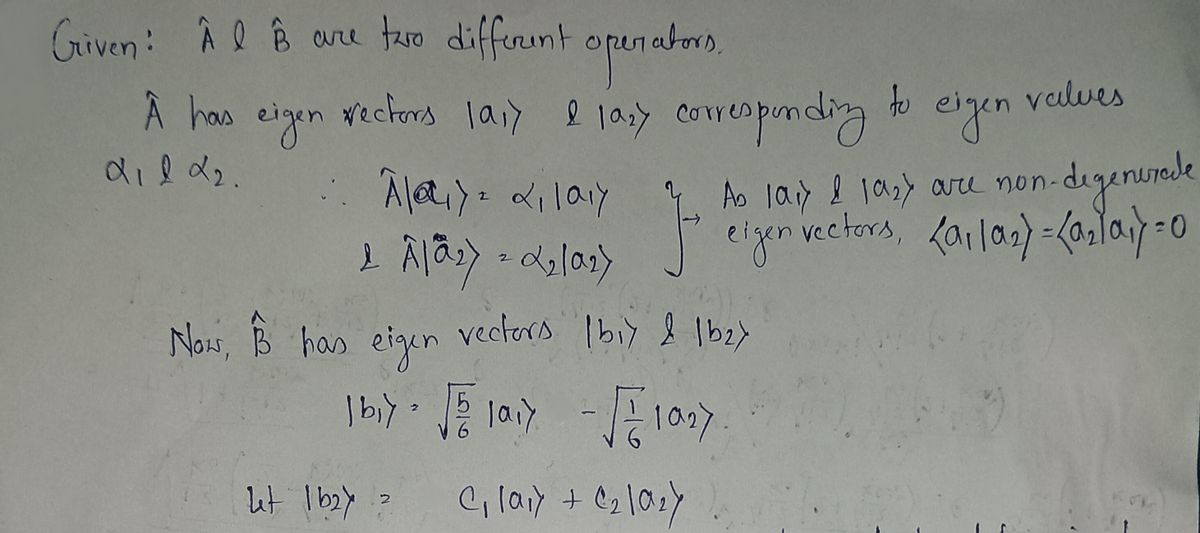 Given: Â & B̂ are two different operators.
Â has eigen vectors |a₁⟩ & |a₂⟩ corresponding to eigen values
α₁ & α₂.
∴ Â|a₁⟩ = α₁|a₁⟩
& Â|a₂⟩ = α₂|a₂⟩
} → As |a₁⟩ & |a₂⟩ are non-degenerate
eigen vectors, ⟨a₁|a₂⟩ = ⟨a₂|a₁⟩ = 0
Now, B̂ has eigen vectors |b₁⟩ & |b₂⟩
|b₁⟩ = √(5/6) |a₁⟩ - √(1/6) |a₂⟩.
let |b₂⟩ = C₁|a₁⟩ + C₂|a₂⟩